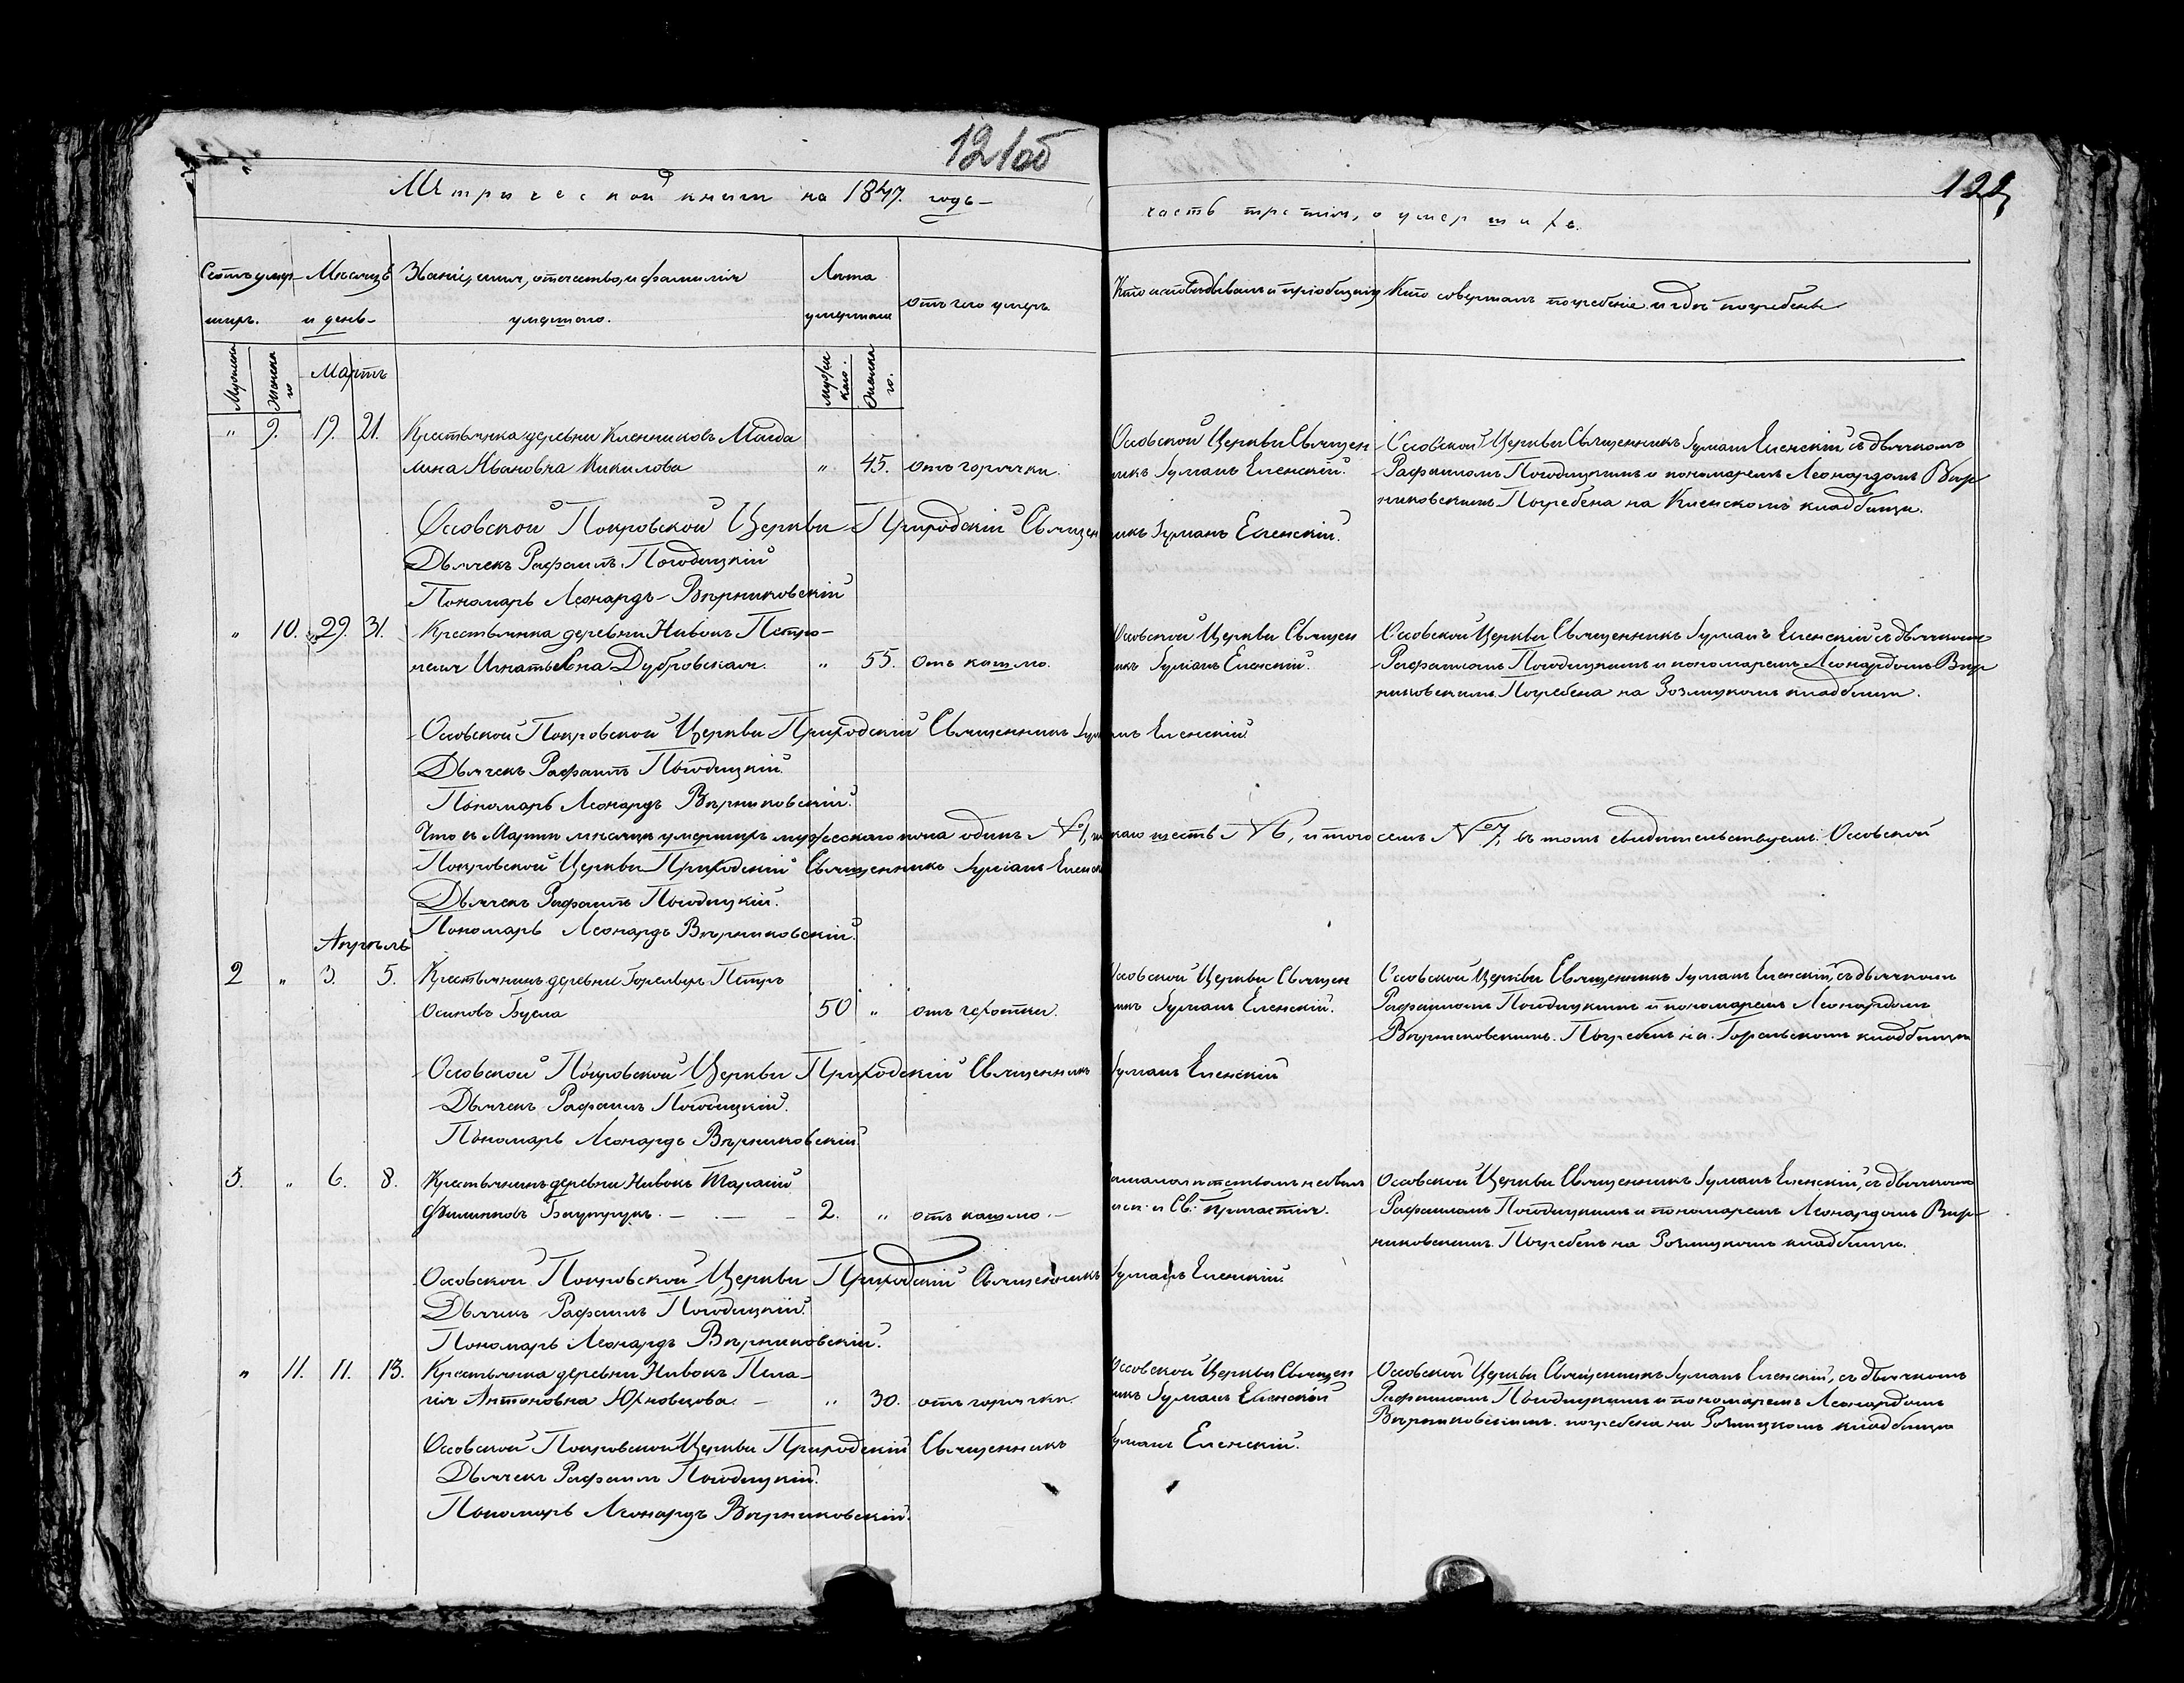 121об
122
Метрической книги на 1847. годъ
часть третія, о умершихъ.
Счетъ умер- Мѣсяцъ Званіе, имя, отчество, и фамилія Лѣта
шихъ. и день умершаго. умершаго отъ чего умеръ
Кто исповѣдывалъ и пріобщалъ Кто совершалъ погребеніе и гдѣ погребены
Мужска Женска го Мартъ мужес каго. Женска го.
" 9. 19. 21. Крестьянка деревни Кленниковъ Магда
лина Ивановна Кикилова " 45. отъ горячки.
Оссовской Церкви Священ
никъ Іуліанъ Еленскій.
Оссовской Церкви Священникъ Іуліанъ Еленскій съ дьячкомъ
Рафаиломъ Погодицкимъ и пономаремъ Леонардомъ Вѣр
никовскимъ Погребена на Кленскомъ кладбищи.
Оссовской Покровской Церкви Приходскій Священникъ Іуліанъ Еленскій.
Дьячекъ Рафаилъ Погодицкій
Пономарь Леонардъ Вѣрниковскій
" 10. 29. 31. Крестьянка деревни Нивокъ Петро-
нелія Игнатьевна Дубровская. " 55. Отъ кашлю.
Оссовской Церкви Священ
никъ Іуліанъ Еленскій.
Оссовской Церкви Священникъ Іуліанъ Еленскій съ дьячкомъ
Рафаиломъ Погодицкимъ и пономаремъ Леонардомъ Вѣр
никовскимъ. Погребена на кладбищи.
Оссовской Покровской Церкви Приходскій Священникъ Іуліанъ Еленскій
Дьячекъ Рафаилъ Погодицкій.
Пономарь Леонардъ Вѣрниковскій.
Что въ Мартѣ мѣсяцѣ умершихъ мужескаго пола одинъ №1, женскаго шесть №6, итого семь №7, въ томъ свидѣтельствуемъ: Оссовской
Покровской Церкви Приходскій Священникъ Іуліанъ Еленскій
Дьячекъ Рафаилъ Погодицкій.
Пономарь Леонардъ Вѣрниковскій.
Апрѣль
2 " 3. 5. Крестьянинъ деревни Петръ
Осиповъ Бусла 50 " отъ чехотки.
Оссовской Церкви Священ
никъ Іуліанъ Еленскій.
Оссовской Церкви Священникъ Іуліанъ Еленскій, съ дьячкомъ
Рафаиломъ Погодицкимъ и пономаремъ Леонардомъ
Вѣрниковскимъ. Погребенъ на кладбищи
Оссовской Покровской Церкви Приходскій Священникъ Іуліанъ Еленскій
Дьячекъ Рафаилъ Погодицкій.
Пономарь Леонардъ Вѣрниковскій.
3. " 6. 8. Крестьянинъ деревни Нивокъ Тарасій
Филиповъ 2. " отъ кашлю.
и Св: Причастія.
Оссовской Церкви Священникъ Іуліанъ Еленскій, съ дьячкомъ
Рафаиломъ Погодицкимъ и пономаремъ Леонардомъ Вѣр
никовскимъ. Погребенъ на кладбищи.
Оссовской Покровской Церкви Приходскій Священникъ Іуліанъ Еленскій.
Дьячекъ Рафаилъ Погодицкій.
Пономарь Леонардъ Вѣрниковскій.
" 11. 11. 13. Крестьянка деревни Нивокъ Пела-
гія Антоновна Юхновцова. " 30. отъ горячки.
Оссовской Церкви Священ
никъ Іуліанъ Еленскій
Оссовской Церкви Священникъ Іуліанъ Еленскій, съ дьячкомъ
Рафаиломъ Погодицкимъ и пономаремъ Леонардомъ
Вѣрниковскимъ. погребена на кладбищи
Оссовской Покровской Церкви Приходскій Священникъ Іуліанъ Еленскій.
Дьячекъ Рафаилъ Погодицкій.
Пономарь Леонардъ Вѣрниковскій.